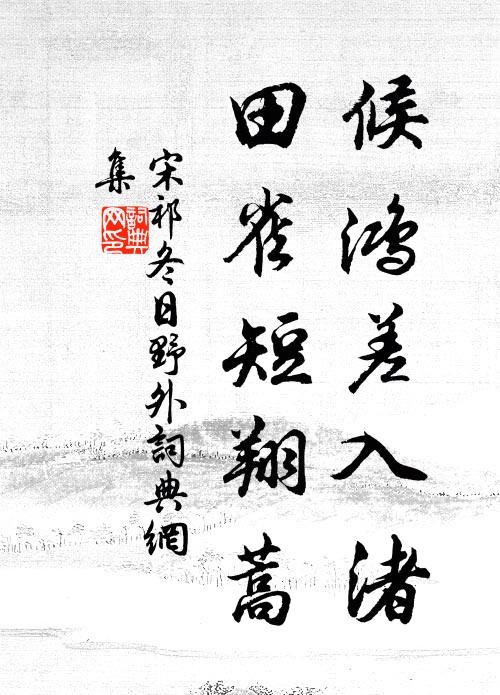 候鴻差入渚
田雀短翔蒿
宋祁冬日野外詞典網
集
詞典
网印